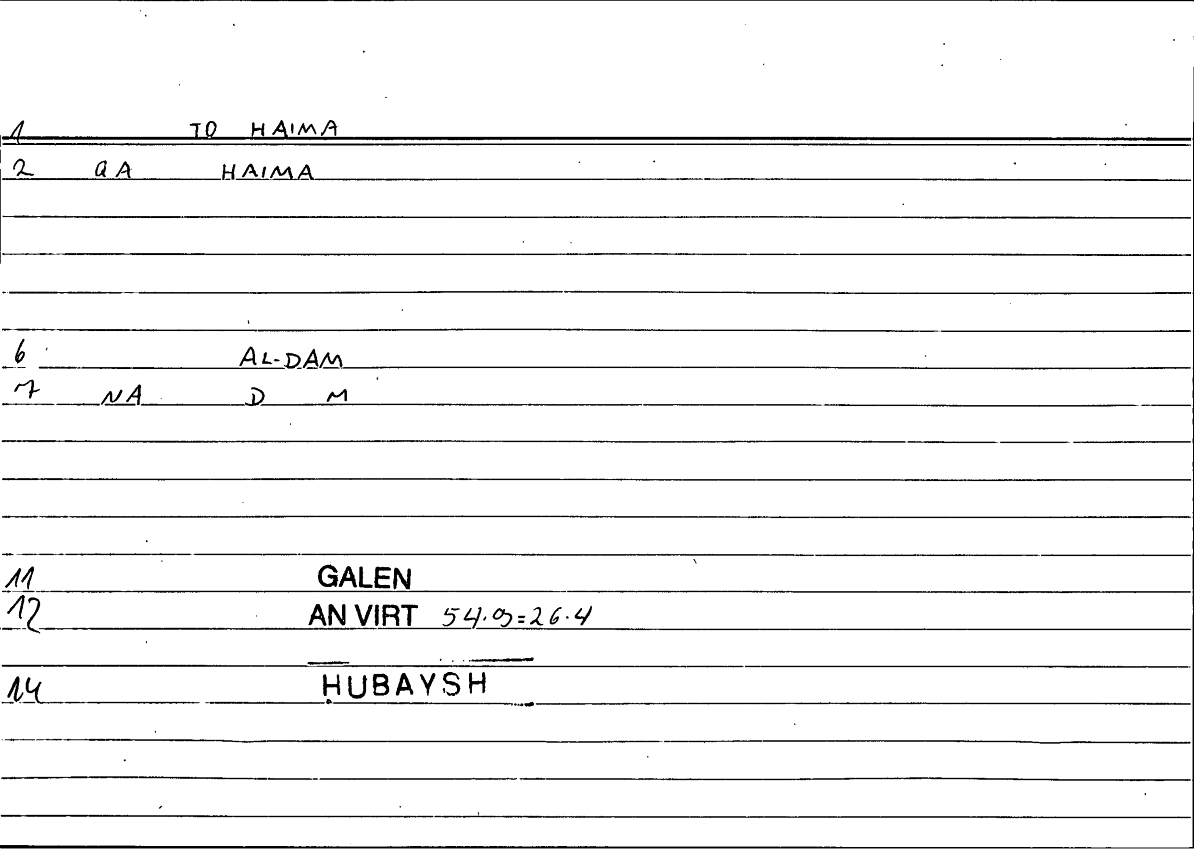 1 TO HAIMA
2 QA HAIMA
6 AL-DAM
7 NA D M
11 GALEN
12 AN VIRT 54.9=26.4
14 ḤUBAYSH